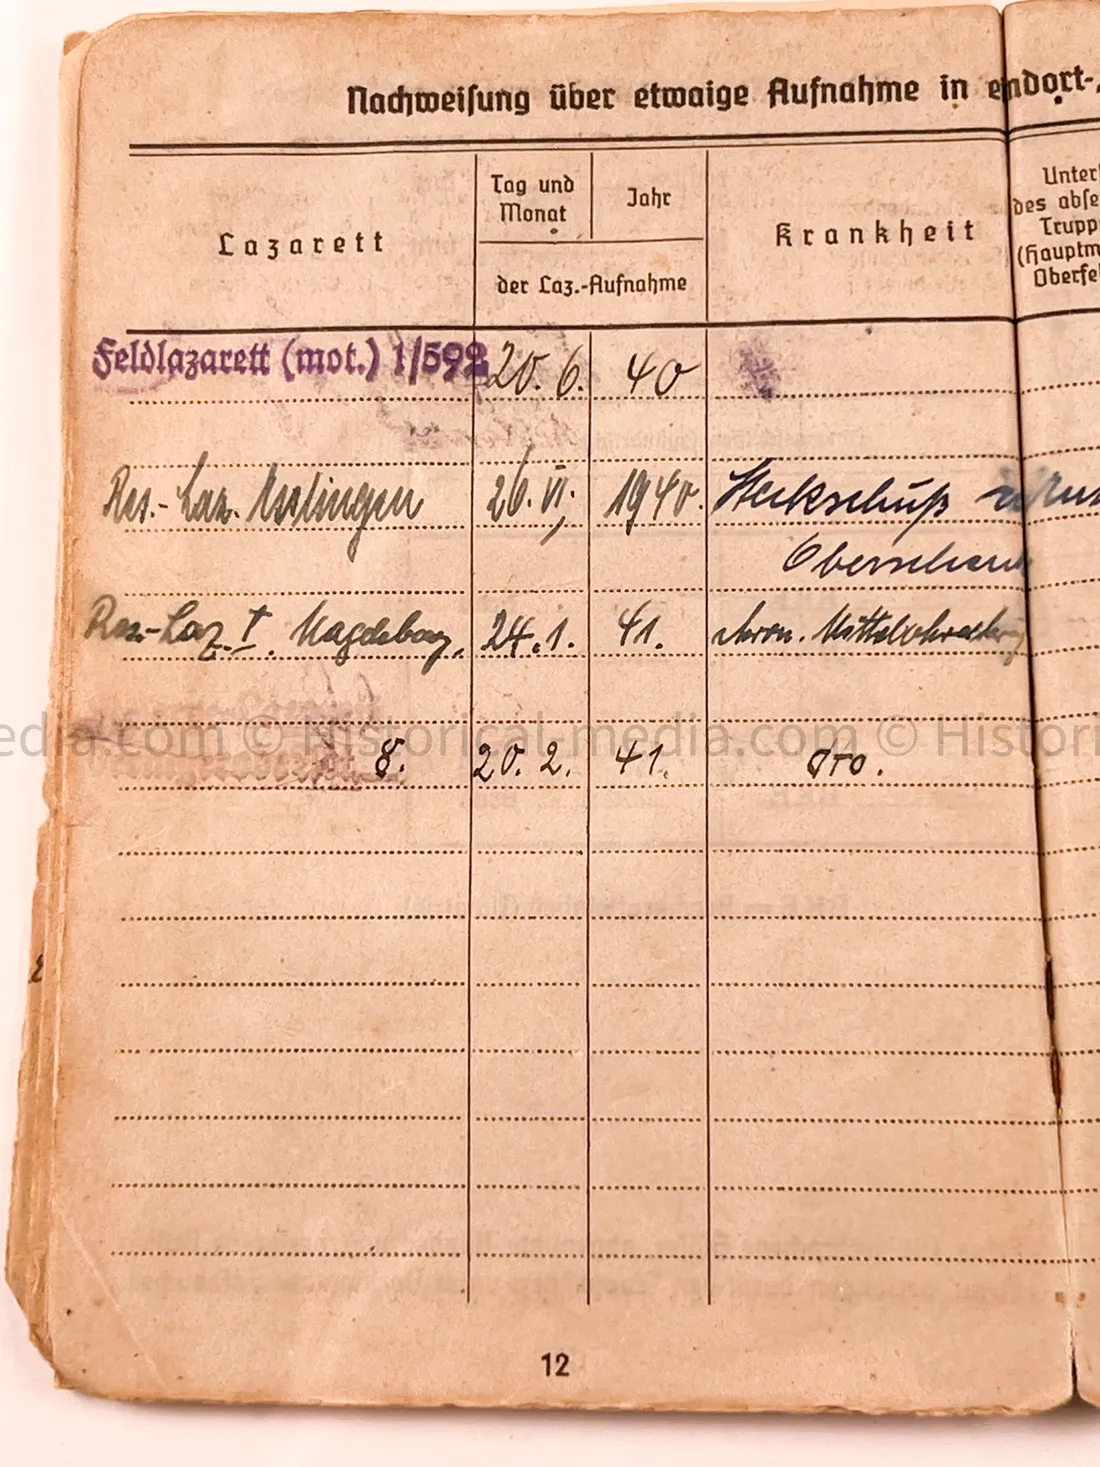 Nachweisung über etwaige Aufnahme in
Lazarett
Tag und
Monat
Jahr
der Laz.-Aufnahme
Krankheit
Unter
des abse
Trupp
(Hauptm
Oberfe
Feldlazarett (mot.) 1/592 20. 6. 40
Res.-Laz. Esslingen 26. VI. 1940. Steckschuß
Oberschenk
Res.-Laz. I. Magdeburg, 24. 1. 41. chron. Mittelohr
edia.com © Historical-media.com © Histori
8. 20. 2. 41. dto.
12